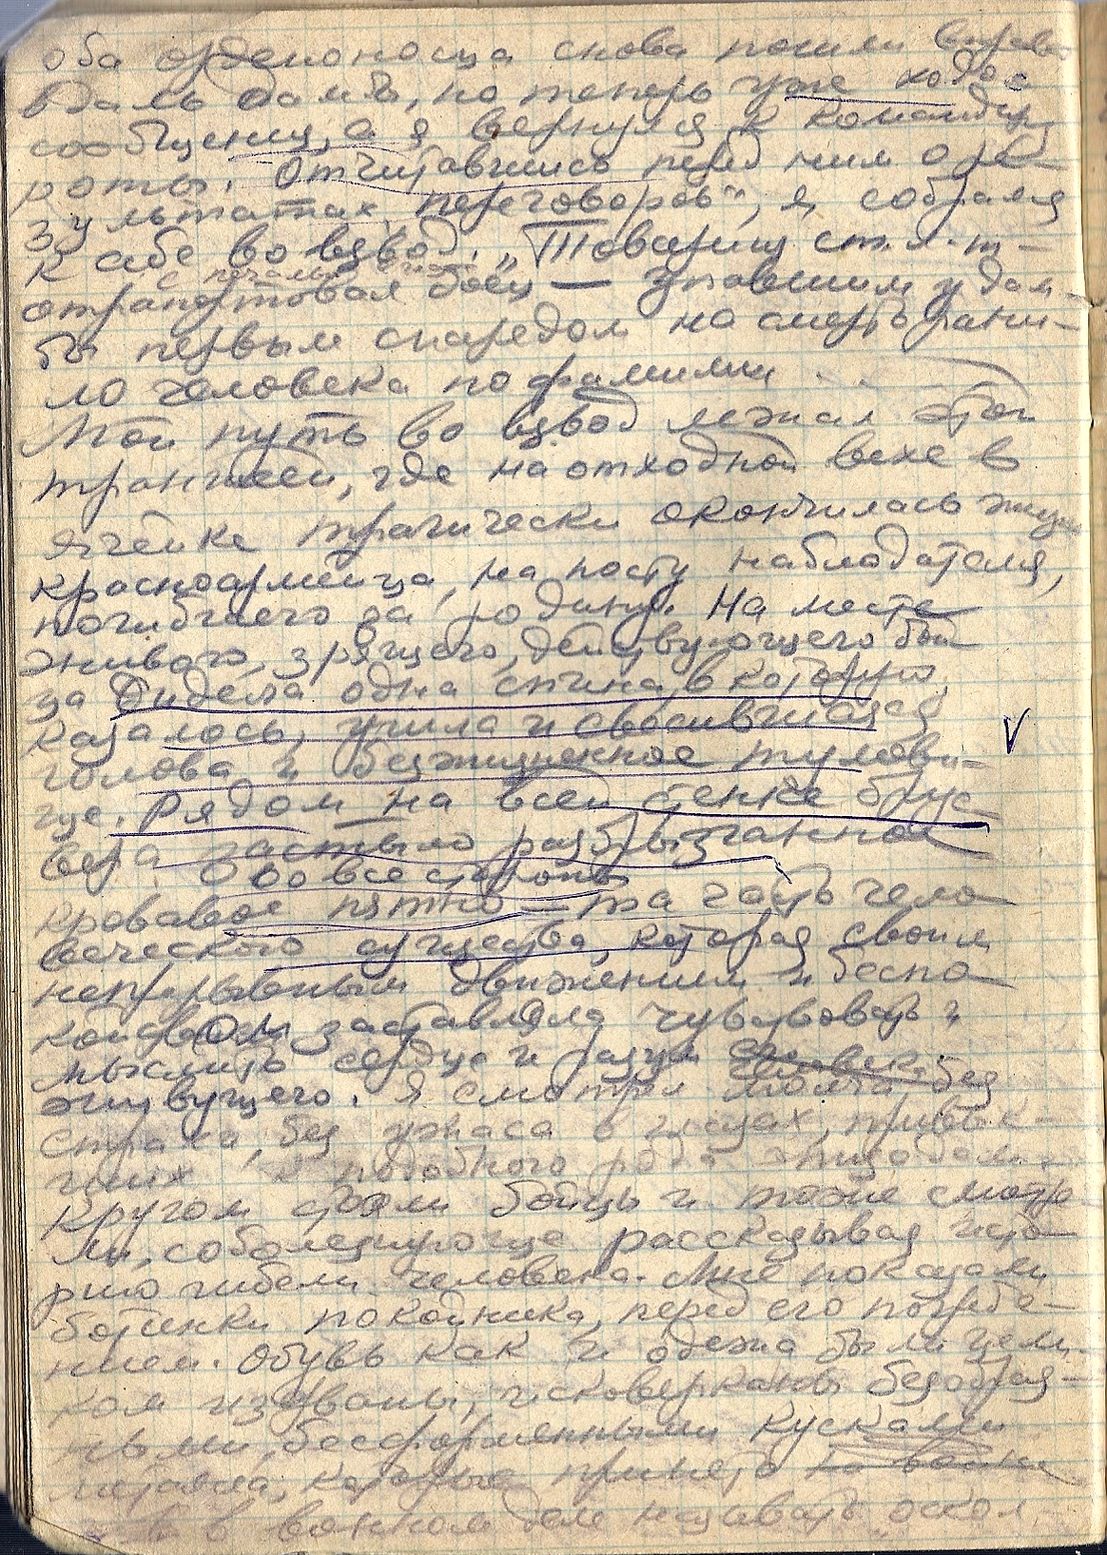 оба орденоносца снова пошли вправо
вдаль дамбы, но теперь уже ходом
сообщения, а я вернулся к командиру
роты. Отчитавшись перед ним о ре-
зультатах „переговоров“, я собрался
к себе во взвод. „Товарищ ст. л-т —
отрапортовал боец — упавшим у дам-
бы первым снарядом на смерть рани-
ло человека по фамилии . . .
Мой путь во взвод лежал этой
траншеей, где на отходной вехе в
ячейке трагически окончилась жизнь
красноармейца, на посту наблюдателя,
погибшего за родину. На месте
живого, зрящего, действующего бой
ца сидела одна спина, в которую,
казалось, ушла и свалившаяся
голова и безжизненное тулови-
ще. Рядом на всей стенке брус
вера застыло разбрызганное
во все стороны
кровавое пятно — та часть чело
веческого существа, которая своим
непрерывным движением и беспо
койством заставляла чувствовать и
мыслить сердце и разум человека
живущего. Я смотрел молча без
страха, без ужаса в глазах, привык-
ших к подобного рода эпизодам.
Кругом стояли бойцы и тоже смотре
ли, соболезнующе рассказывая исто-
рию гибели человека. Мне показали
ботинки покойника, перед его погребе-
нием. Обувь как и одежа были цели-
ком изорваны, исковерканы безобраз-
ными, бесформенными кусками
металла, которые принято на войне
в военном деле называть „оскол-